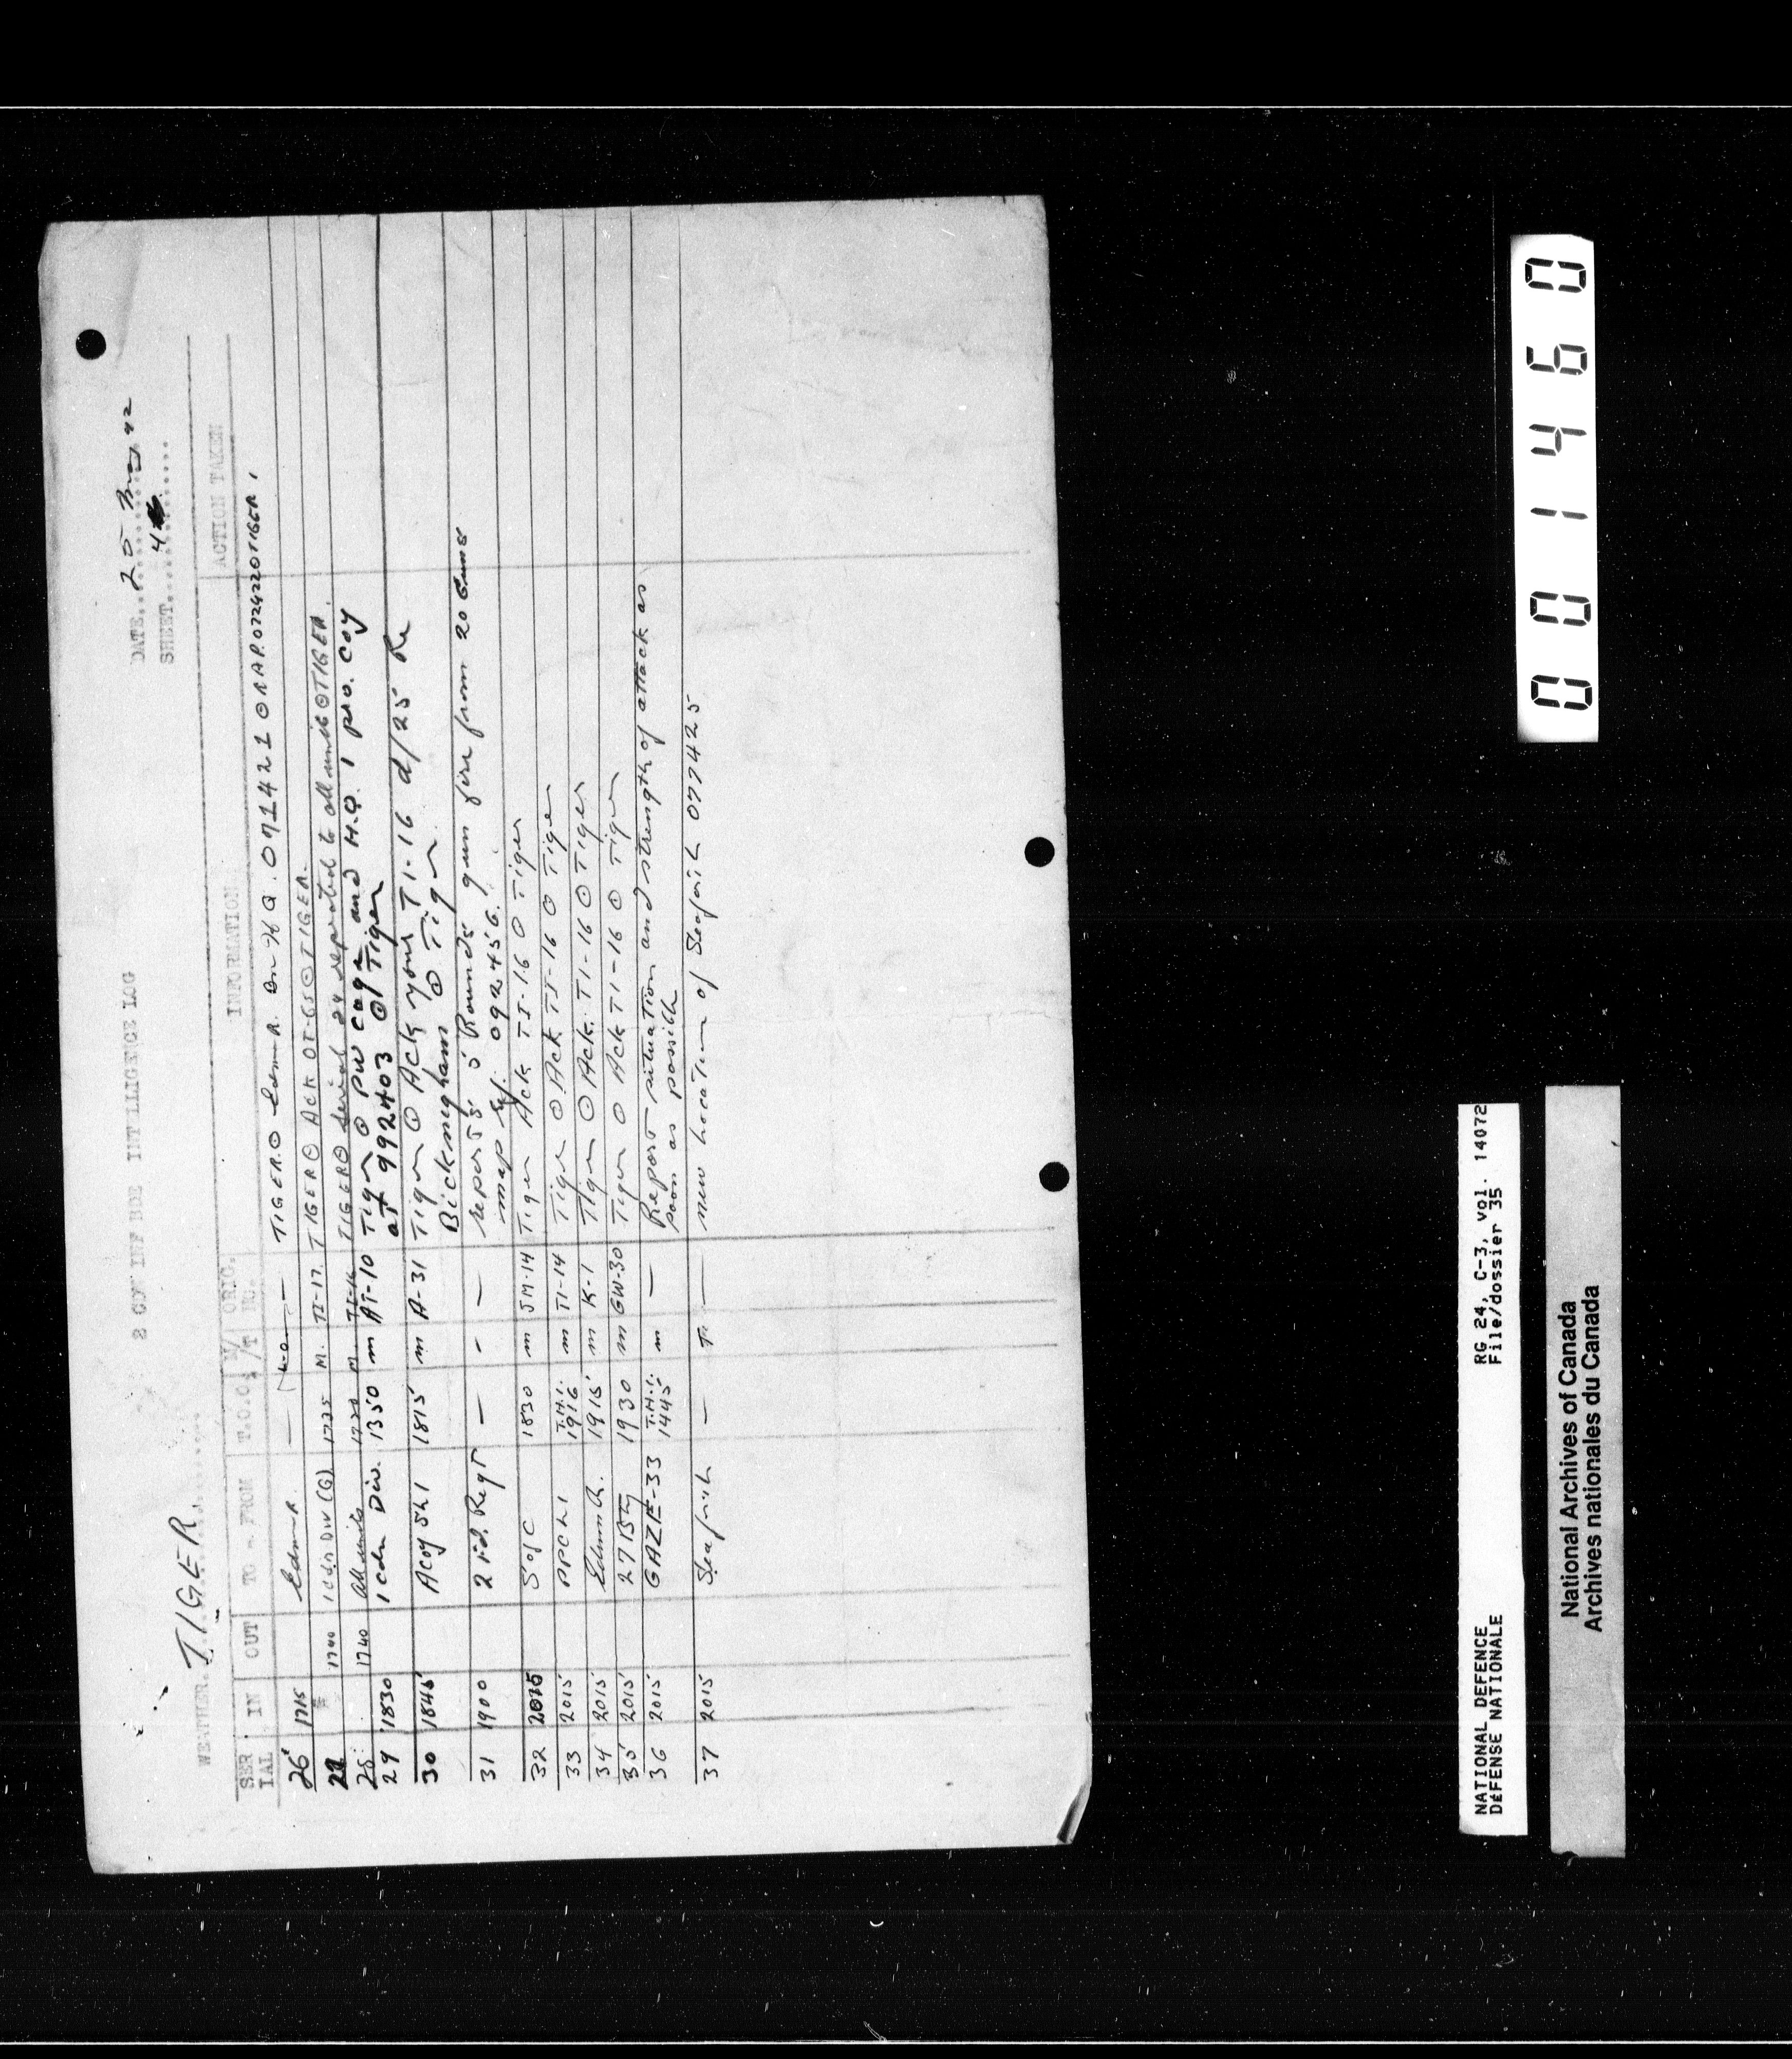 2 CDN INF BDE INTELLIGENCE LOG
DATE.. 25 May 42
SHEET.. 4
WEATHER. TIGER
SER IAL | IN | OUT | TO - FROM | T.O.O. | W/T | ORIG. NO. | INFORMATION | ACTION TAKEN
26 1715 Edm R. — — TIGER ⊙ Edm R. Bn HQ. 071421 ⊙ RAP 072422 ⊙ TIGER
27 1740 1 Cdn Div (G) 1735 M. TI-17. TIGER ⊙ Ack OT-65 ⊙ TIGER.
28 1740 All units 1730 M. TI-16 TIGER ⊙ Serial 24 repeated to all units ⊙ TIGER.
29 1830 1 Cdn Div. 1350 m AT-10 Tiger ⊙ PW cage and H.Q. 1 pro. coy
at 992403 ⊙ Tiger
30 1845 A coy SLI 1815 m A-31 Tiger ⊙ Ack your TI-16 d/25 Re
Bickmingham ⊙ Tiger
31 1900 2 Fd. Regt — - — reports 5 Rounds gun fire from 20 Guns
map ref. 092456.
32 2015 S of C 1830 m JM-14 Tiger Ack TI-16 ⊙ Tiger
33 2015 PPCLI T.H.I. 1916 m TI-14 Tiger ⊙ Ack TI-16 ⊙ Tiger
34 2015 Edmn R. 1915 m K-1 Tiger ⊙ Ack. TI-16 ⊙ Tiger
35 2015 27 Bty 1930 m GW-30 Tiger ⊙ Ack TI-16 ⊙ Tiger
36 2015 GAZE-33 T.H.I. 1445 m — Report situation and strength of attack as
soon as possible
37 2015 Seaforth — T. — new location of Seaforth 077425
001460
NATIONAL DEFENCE
DÉFENSE NATIONALE
RG 24, C-3, vol. 14072
File/dossier 35
National Archives of Canada
Archives nationales du Canada